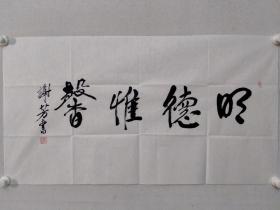 明德惟馨
謝芳書